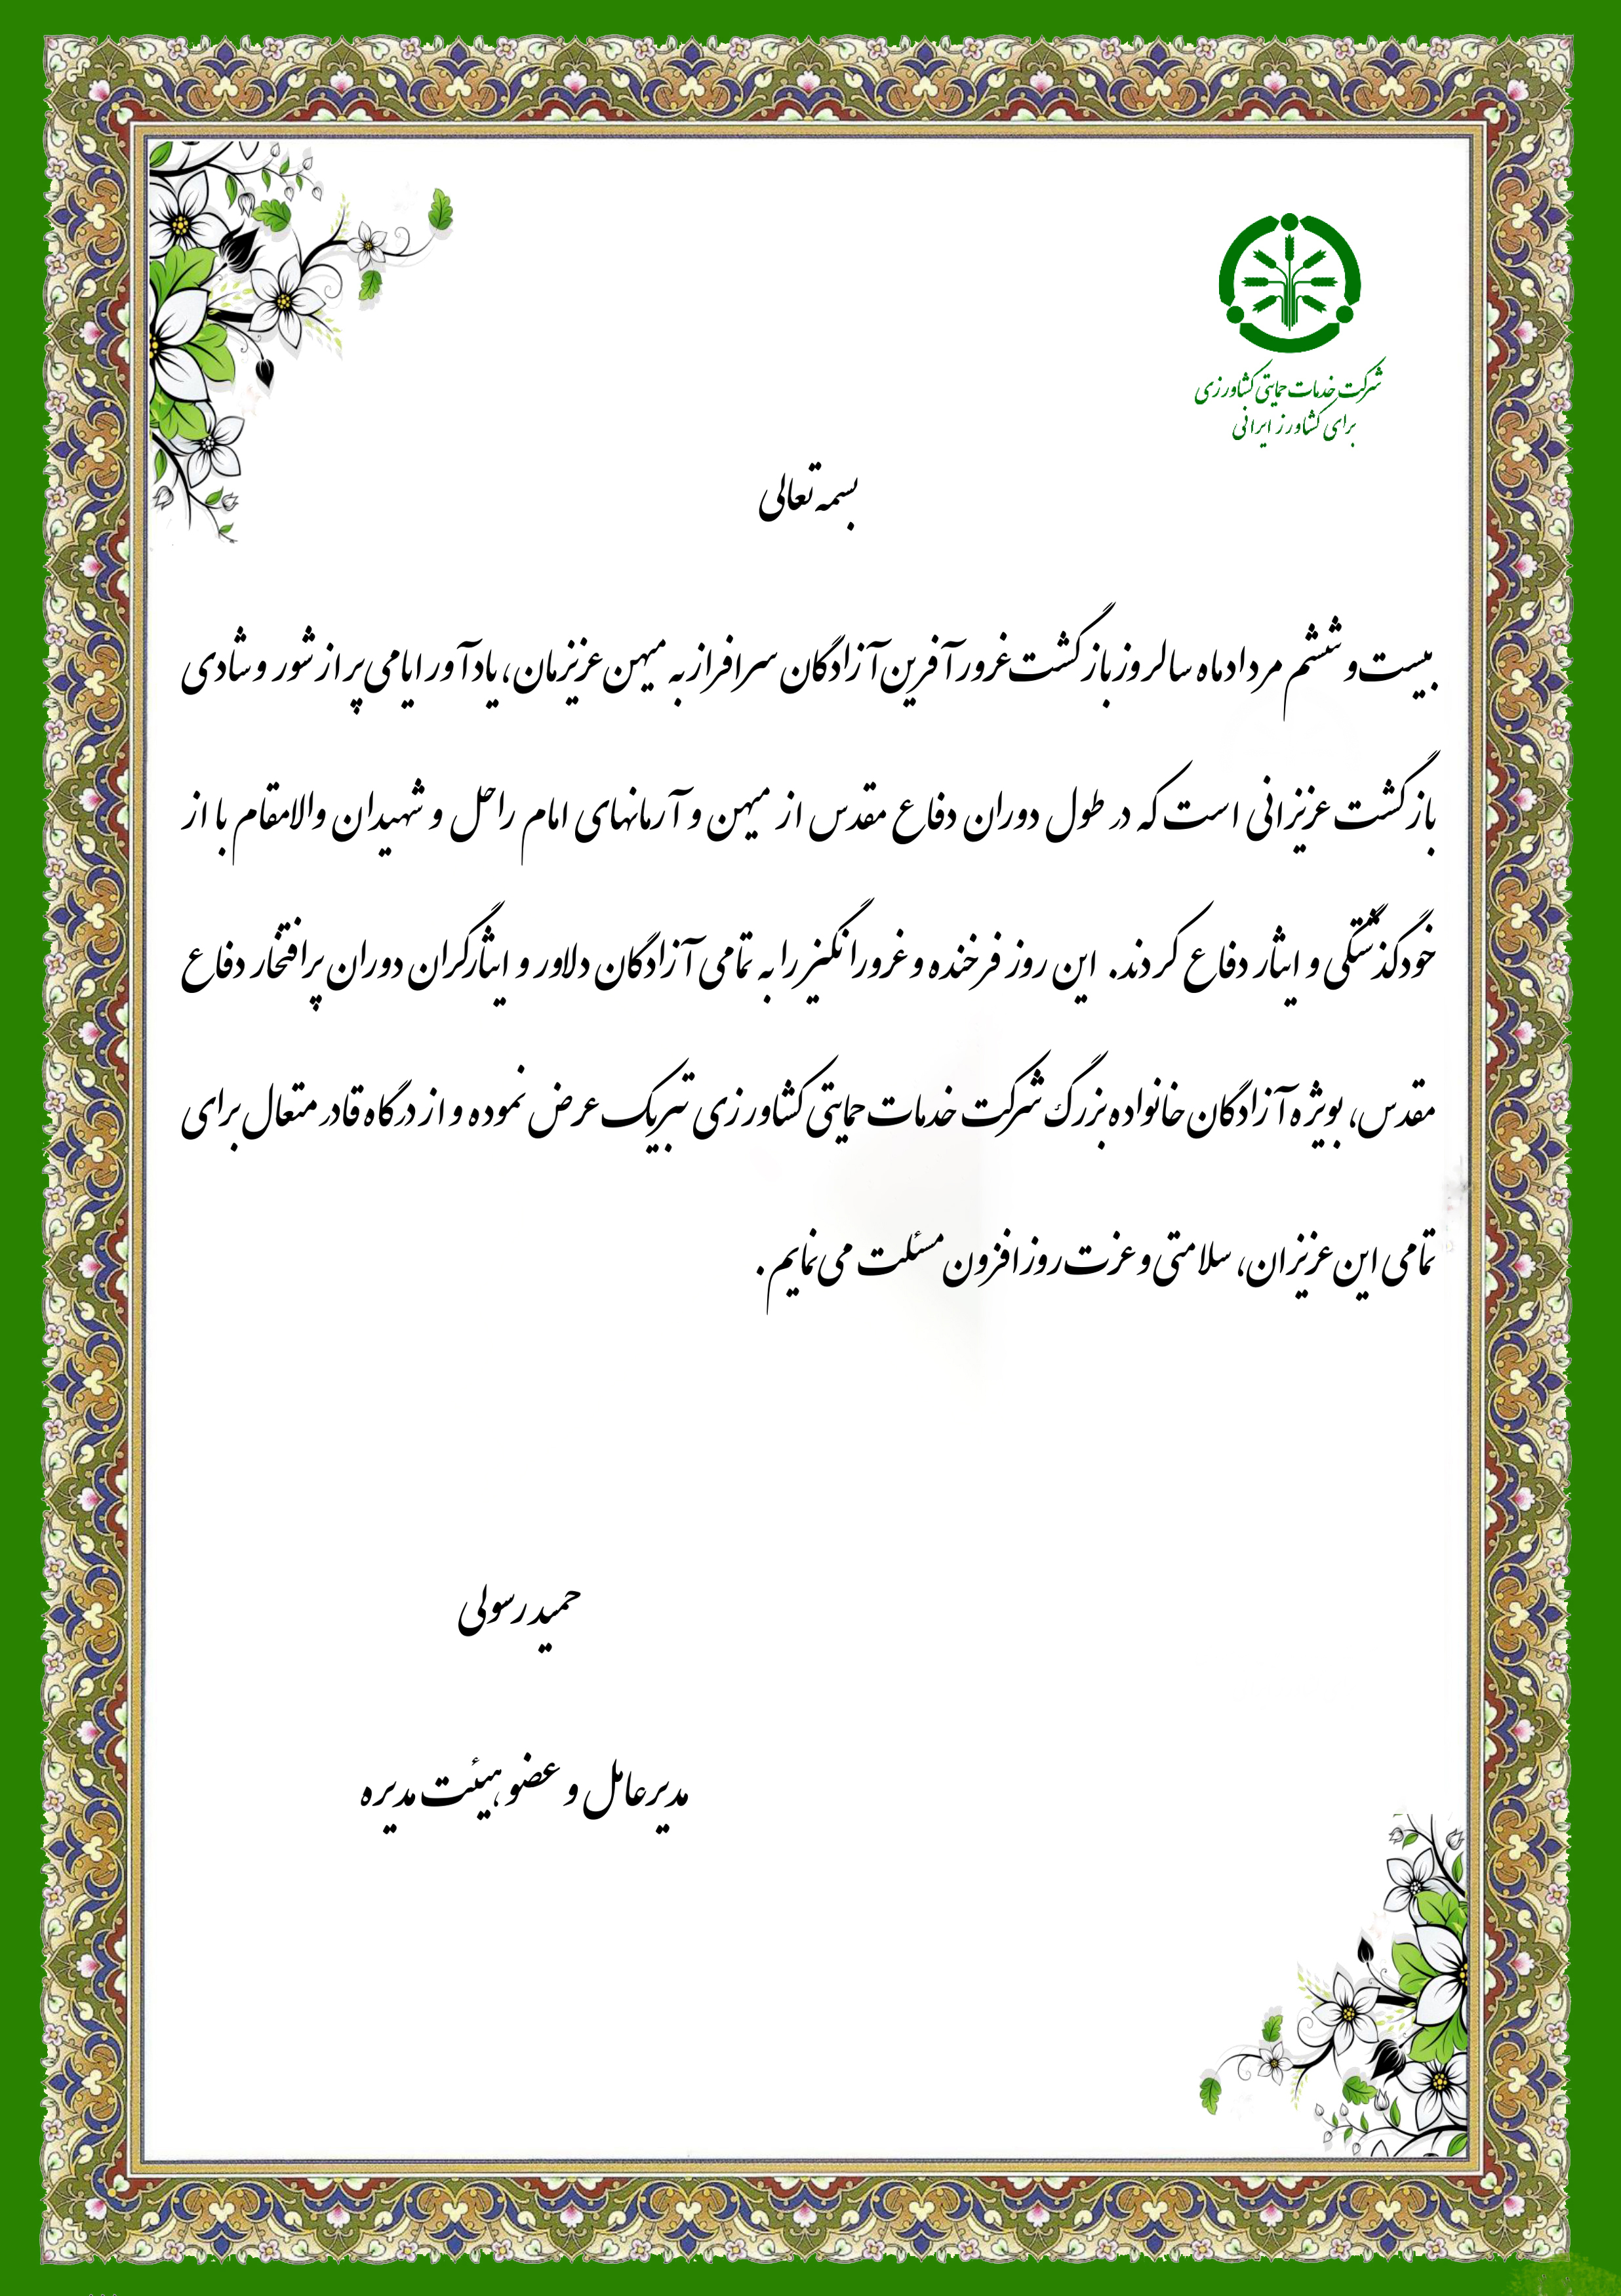 شرکت خدمات حمایتی کشاورزی
برای کشاورز ایرانی
بسمه تعالی
بیست و ششم مردادماه سالروز بازگشت غرورآفرین آزادگان سرافراز به میهن عزیزمان، یادآور ایامی پر از شور و شادی
بازگشت عزیزانی است که در طول دوران دفاع مقدس از میهن و آرمانهای امام راحل و شهیدان والامقام با از
خودگذشتگی و ایثار دفاع کردند. این روز فرخنده و غرورانگیز را به تمامی آزادگان دلاور و ایثارگران دوران پرافتخار دفاع
مقدس، بویژه آزادگان خانواده بزرگ شرکت خدمات حمایتی کشاورزی تبریک عرض نموده و از درگاه قادر متعال برای
تمامی این عزیزان، سلامتی و عزت روزافزون مسئلت می‌نمایم.
حمید رسولی
مدیرعامل و عضو هیئت مدیره